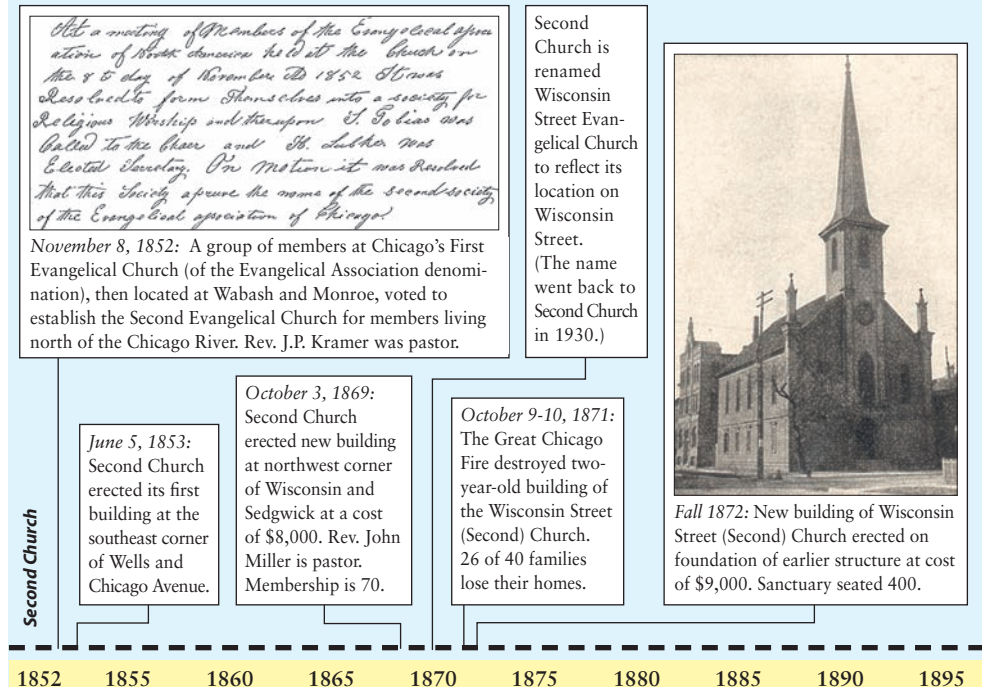 At a meeting of Members of the Evangelical assoc
ation of North America held at the Church on
the 8 th day of November AD 1852 It was
Resolved to form Themselves into a society for
Religious Worship and thereupon S. Tobias was
Called to the Chair and H. Lubker was
Elected Secretary. On Motion it was Resolved
that this Society assume the name of the second society
of the Evangelical association of Chicago
November 8, 1852: A group of members at Chicago's First
Evangelical Church (of the Evangelical Association denomi-
nation), then located at Wabash and Monroe, voted to
establish the Second Evangelical Church for members living
north of the Chicago River. Rev. J.P. Kramer was pastor.
Second
Church is
renamed
Wisconsin
Street Evan-
gelical Church
to reflect its
location on
Wisconsin
Street.
(The name
went back to
Second Church
in 1930.)
June 5, 1853:
Second Church
erected its first
building at the
southeast corner
of Wells and
Chicago Avenue.
October 3, 1869:
Second Church
erected new building
at northwest corner
of Wisconsin and
Sedgwick at a cost
of $8,000. Rev. John
Miller is pastor.
Membership is 70.
October 9-10, 1871:
The Great Chicago
Fire destroyed two-
year-old building of
the Wisconsin Street
(Second) Church.
26 of 40 families
lose their homes.
Fall 1872: New building of Wisconsin
Street (Second) Church erected on
foundation of earlier structure at cost
of $9,000. Sanctuary seated 400.
Second Church
1852 1855 1860 1865 1870 1875 1880 1885 1890 1895